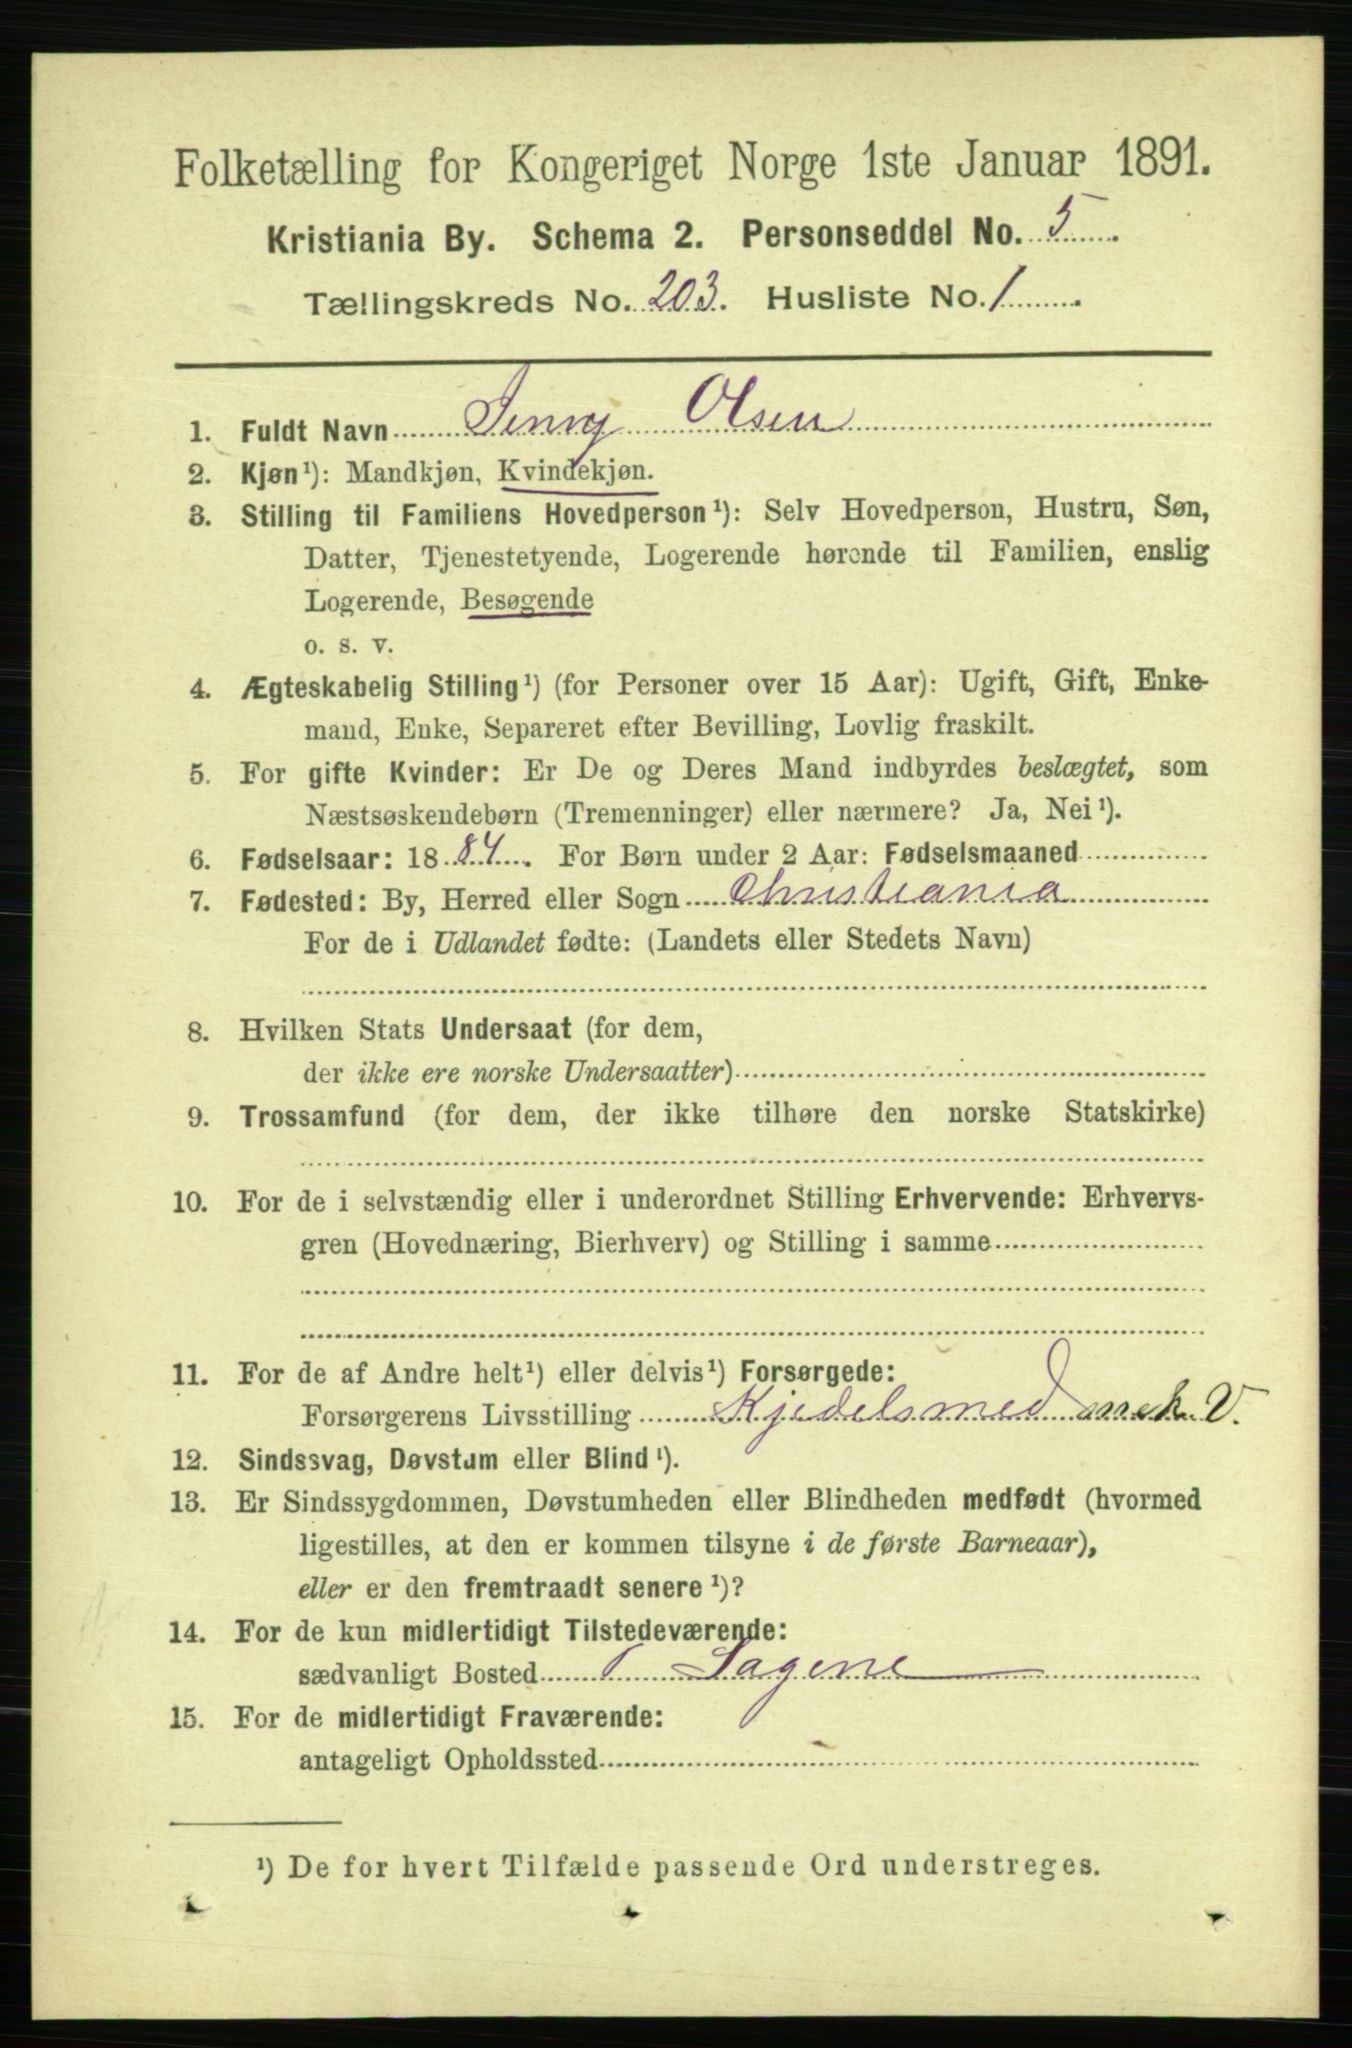 Folketælling for Kongeriget Norge 1ste Januar 1891.
Kristiania By. Schema 2. Personseddel No. 5
Tællingskreds No. 203. Husliste No. 1
1. Fuldt Navn Jenny Olsen
2. Kjøn¹): Mandkjøn, Kvindekjøn.
3. Stilling til Familiens Hovedperson¹): Selv Hovedperson, Hustru, Søn,
Datter, Tjenestetyende, Logerende hørende til Familien, enslig
Logerende, Besøgende
o. s. v.
4. Ægteskabelig Stilling¹) (for Personer over 15 Aar): Ugift, Gift, Enke-
mand, Enke, Separeret efter Bevilling, Lovlig fraskilt.
5. For gifte Kvinder: Er De og Deres Mand indbyrdes beslægtet, som
Næstsøskendebørn (Tremenninger) eller nærmere? Ja, Nei¹).
6. Fødselsaar: 1884. For Børn under 2 Aar: Fødselsmaaned
7. Fødested: By, Herred eller Sogn Christiania
For de i Udlandet fødte: (Landets eller Stedets Navn)
8. Hvilken Stats Undersaat (for dem,
der ikke ere norske Undersaatter)
9. Trossamfund (for dem, der ikke tilhøre den norske Statskirke)
10. For de i selvstændig eller i underordnet Stilling Erhvervende: Erhvervs-
gren (Hovednæring, Bierhverv) og Stilling i samme
11. For de af Andre helt¹) eller delvis¹) Forsørgede:
Forsørgerens Livsstilling Kjedelsmed mek. V.
12. Sindssvag, Døvstum eller Blind¹).
13. Er Sindssygdommen, Døvstumheden eller Blindheden medfødt (hvormed
ligestilles, at den er kommen tilsyne i de første Barneaar),
eller er den fremtraadt senere¹)?
14. For de kun midlertidigt Tilstedeværende:
sædvanligt Bosted Sagene
15. For de midlertidigt Fraværende:
antageligt Opholdssted
¹) De for hvert Tilfælde passende Ord understreges.